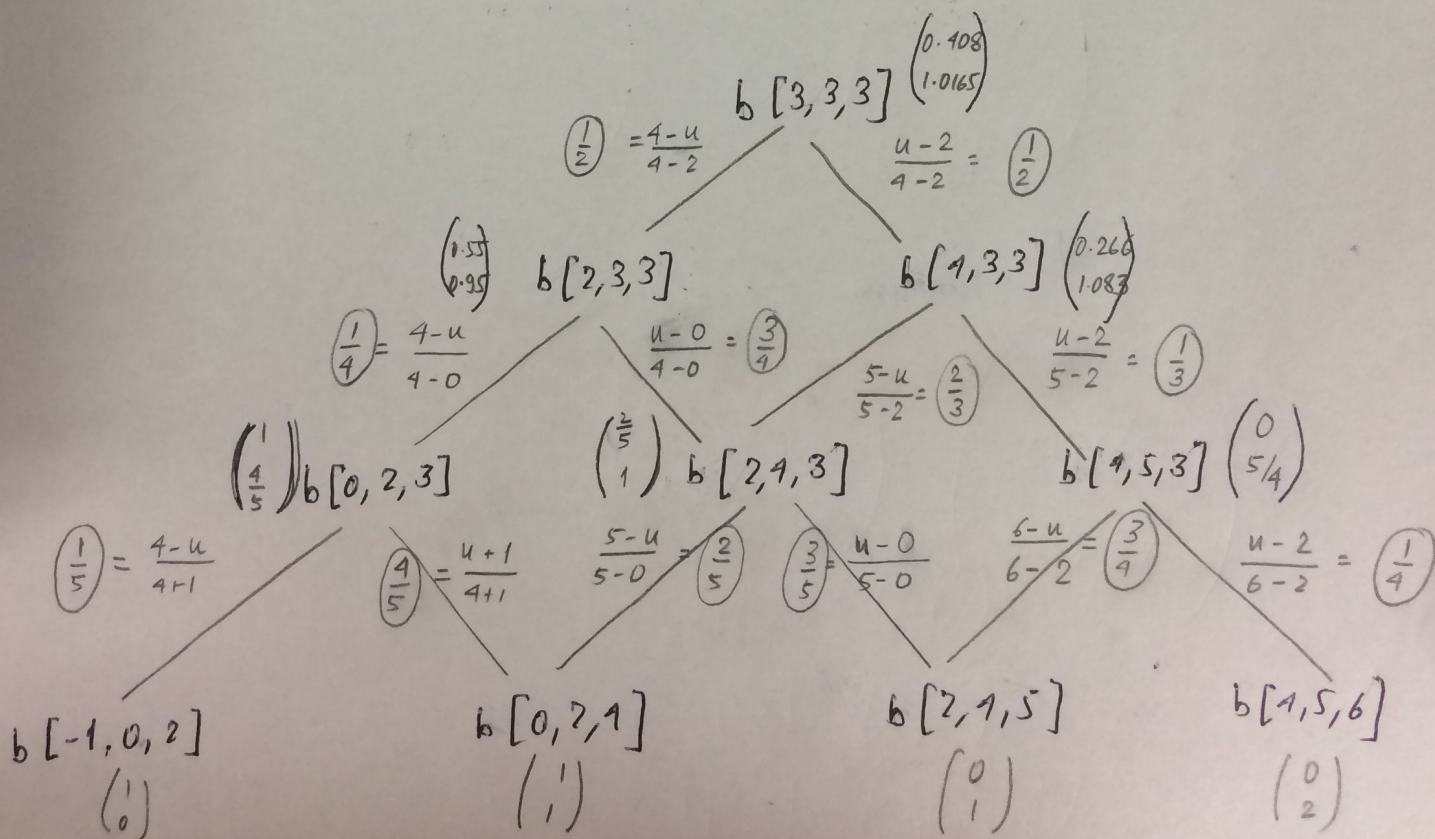 b [3,3,3] (0.408 1.0165)
(1/2) = 4-u/4-2 u-2/4-2 = (1/2)
(0.55 0.95) b [2,3,3] b [4,3,3] (0.266 1.083)
(1/4) = 4-u/4-0 u-0/4-0 = (3/4) 5-u/5-2 = (2/3) u-2/5-2 = (1/3)
(1 4/5) b [0,2,3] (2/5 1) b [2,4,3] b [4,5,3] (0 5/4)
(1/5) = 4-u/4+1 (4/5) = u+1/4+1 5-u/5-0 = (2/5) (3/5) = u-0/5-0 6-u/6-2 = (3/4) u-2/6-2 = (1/4)
b [-1,0,2] b [0,2,4] b [2,4,5] b [4,5,6]
(1 0) (1 1) (0 1) (0 2)